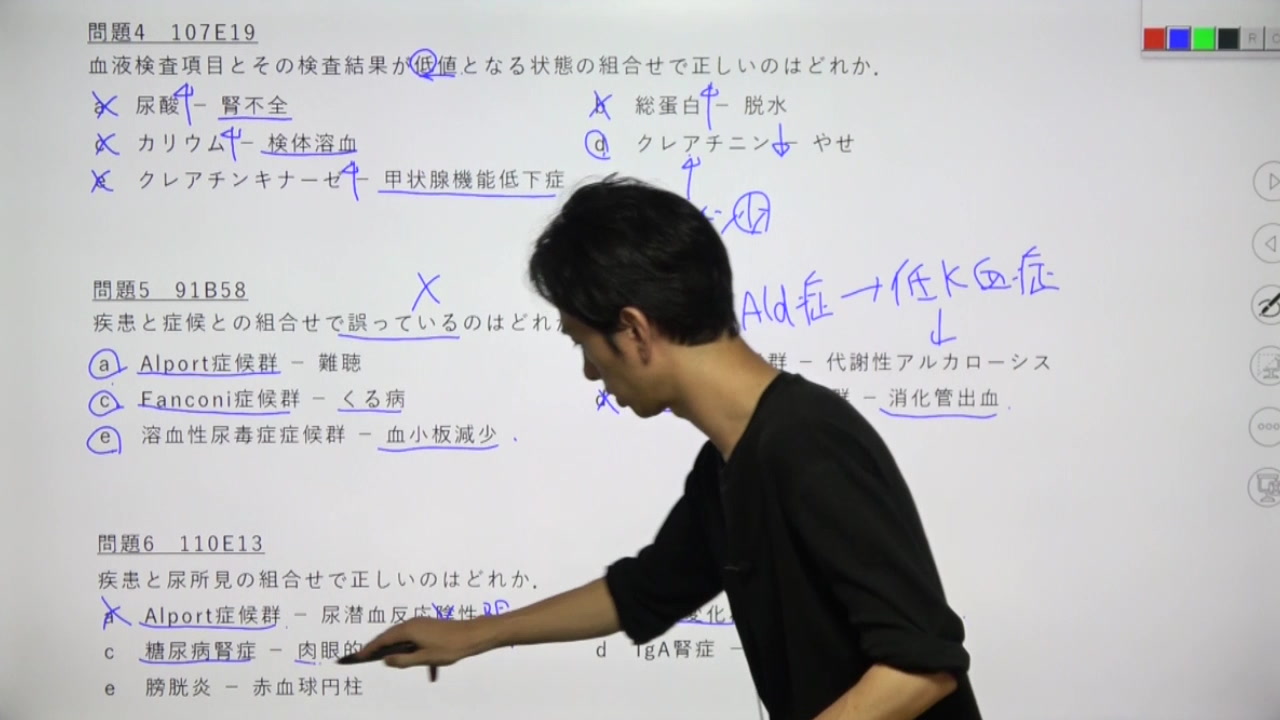 問題4 107E19
血液検査項目とその検査結果が低値となる状態の組合せで正しいのはどれか.
a 尿酸↑ － 腎不全 b 総蛋白↑ － 脱水
c カリウム↑ － 検体溶血 d クレアチニン↓ － やせ
e クレアチンキナーゼ↑ － 甲状腺機能低下症
少
問題5 91B58 ×
Ald症→低K血症
↓
疾患と症候との組合せで誤っているのはどれ
a Alport症候群 － 難聴 群 － 代謝性アルカローシス
c Fanconi症候群 － くる病 d 群 － 消化管出血
e 溶血性尿毒症症候群 － 血小板減少
問題6 110E13
疾患と尿所見の組合せで正しいのはどれか.
a Alport症候群 － 尿潜血反応陰性 変化
c 糖尿病腎症 － 肉眼的 d IgA腎症 －
e 膀胱炎 － 赤血球円柱